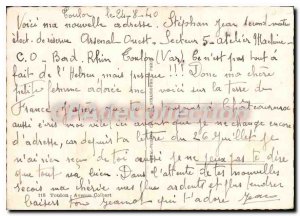 Toulon le 24-8-40
Voici ma nouvelle adresse. Stéphan Jean second-maître
élect. de réserve Arsenal Ouest - Secteur 5 - atelier Machine -
C.O. Bord Rhin Toulon (Var). Ce n'est pas tout à
fait de l'Hebreu mais presque !!! Donc ma chère
petite femme adorée me voici sur la Terre de
France, j'
aussi écris moi vite, ce avant que je ne change encore
d'adresse, car depuis ta lettre du 26 Juillet je
n'ai rien reçu de toi aussi je ne puis pas te dire
que tout va bien. Dans l'attente de tes nouvelles
reçois ma cherie mes plus ardents et plus tendres
baisers Ton Jeannot qui t'adore Jean
718 Toulon - Avenue Colbert